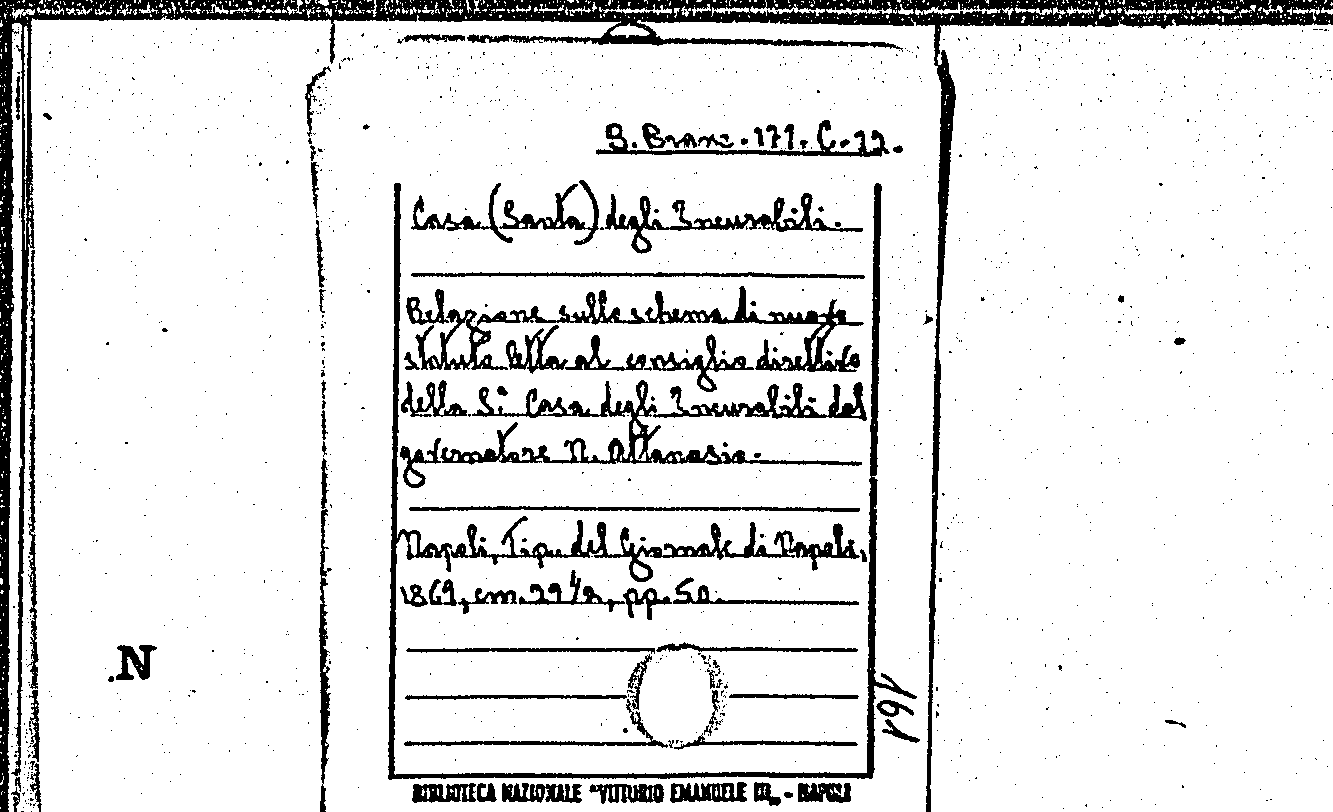 B. Branc. 171. C. 12.
Casa (Santa) degli Incurabili.
Relazione sullo schema di nuovo
statuto letta al consiglio direttivo
della S.ª Casa degli Incurabili dal
governatore N. Attanasio.
Napoli, Tip. del Giornale di Napoli,
1869, cm. 29 1/2, pp. 50.
N
161
BIBLIOTECA NAZIONALE "VITTORIO EMANUELE III„ - NAPOLI